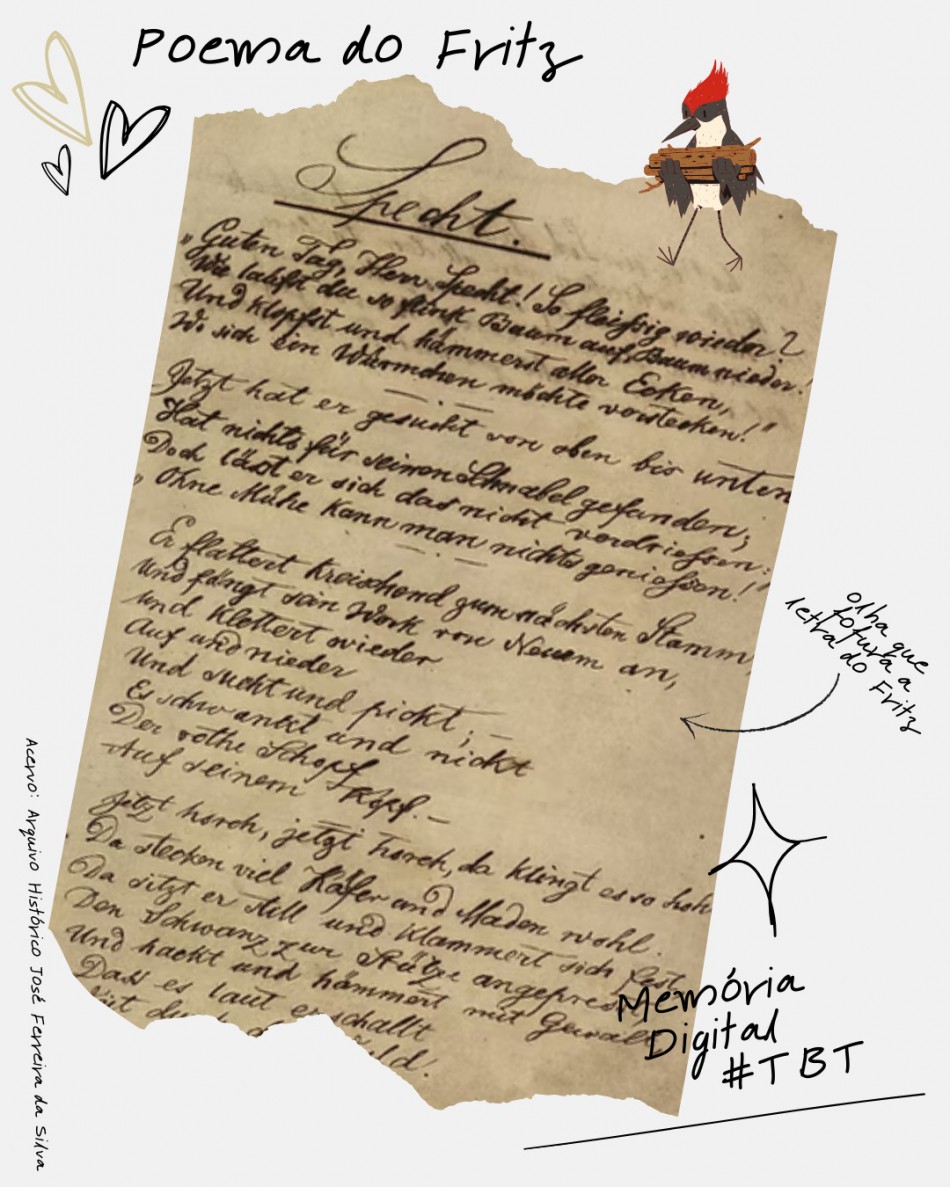 Poema do Fritz
Specht.
„Guten Tag, Herr Specht! So fleißig wieder?
Wie läufst du so flink Baum auf, Baum nieder!
Und klopfst und hämmerst aller Ecken,
Wo sich ein Würmchen möchte verstecken!"
Jetzt hat er gesucht von oben bis unten
Hat nichts für seinen Schnabel gefunden;
Doch lässt er sich das nicht verdrießen:
„Ohne Mühe kann man nichts genießen!"
Er flattert kreischend zum nächsten Stamm,
Und fängt sein Werk von Neuem an,
und klettert wieder
Auf und nieder
Und sucht und pickt;—
Es schwankt und nickt
Der rothe Schopf
Auf seinem Kopf.—
Jetzt horch, jetzt horch, da klingt es so hohl
Da stecken viel Käfer und Maden wohl.
Da sitzt er still und klammert sich fest
Den Schwanz zur Stütze angepresst,
Und hackt und hämmert mit Gewalt
Dass es laut erschallt
olha que
fofura a
letra do Fritz
Memória
Digital
#TBT
Acervo: Arquivo Histórico José Ferreira da Silva